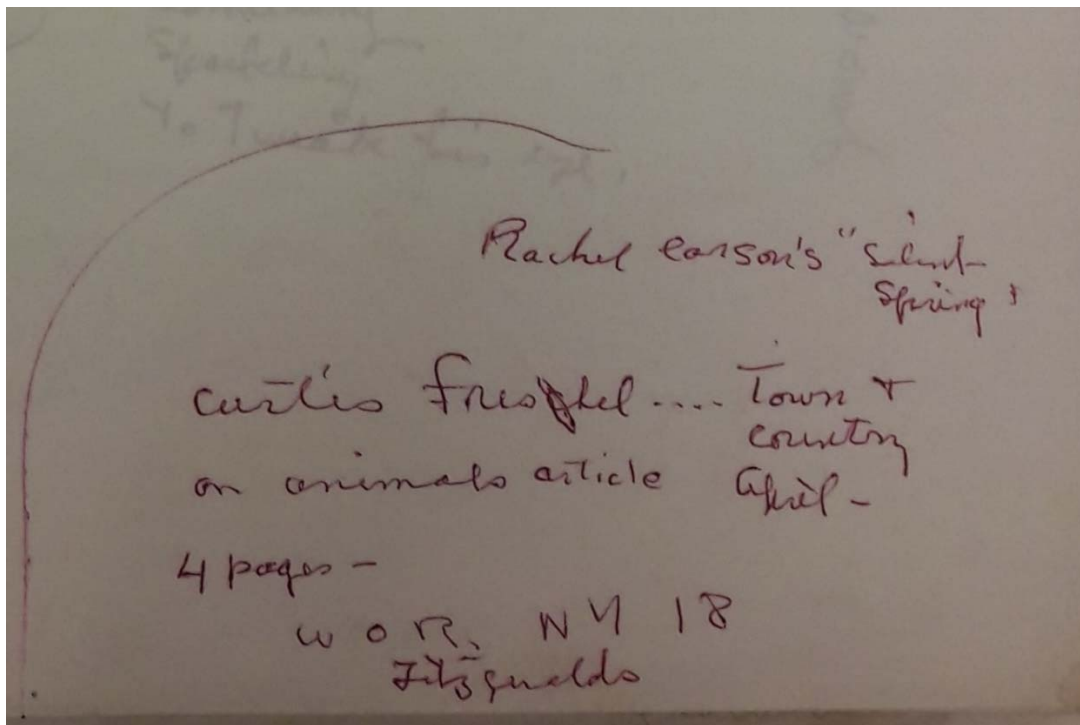 Rachel Carson's "Silent
Spring"
Curtis Freshel.... Town +
country
on animals article April -
4 pages -
WOR, NY 18
Fitzgeralds